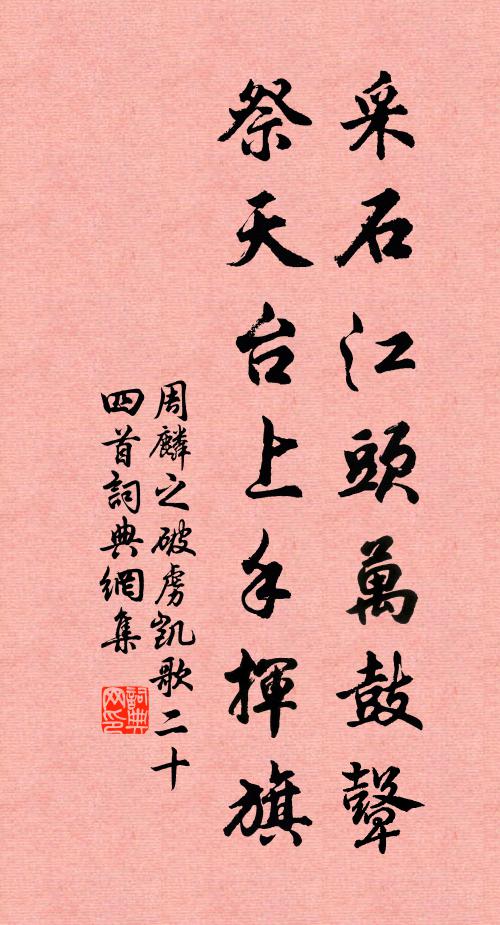 采石江頭萬鼓鼙
祭天台上手揮旗
周麟之破虜凱歌二十
四首詞典網集
詞典
网印